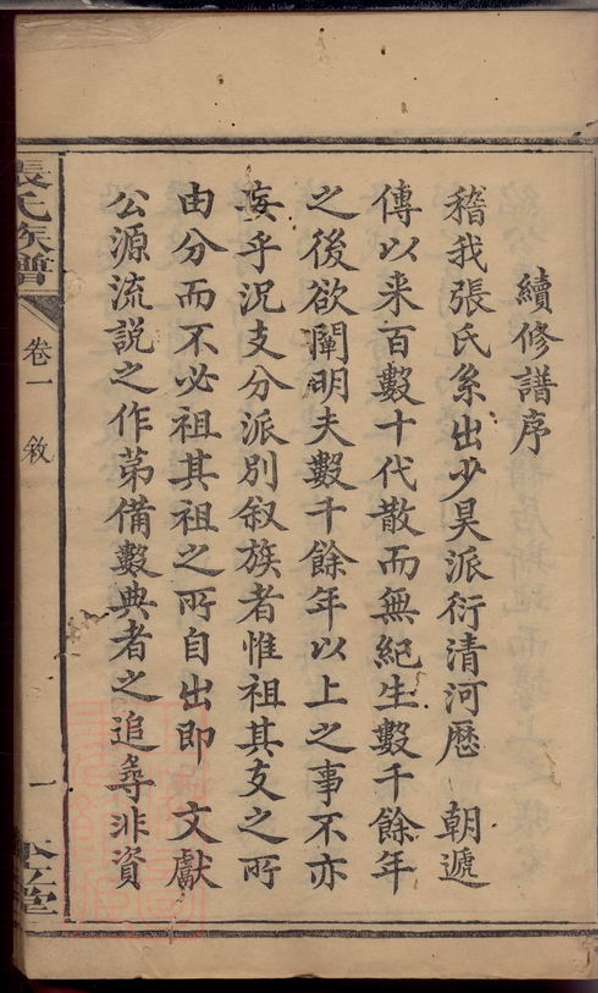 續修譜序
稽我張氏系出少昊派衍清河歷　朝遞
傳以来百數十代散而無紀生數千餘年
之後欲闡明夫數千餘年以上之事不亦
妄乎況支分派別叙族者惟祖其支之所
由分而不必祖其祖之所自出即　文獻
公源流説之作苐備數典者之追尋非資
張氏族譜
卷一
敘
一